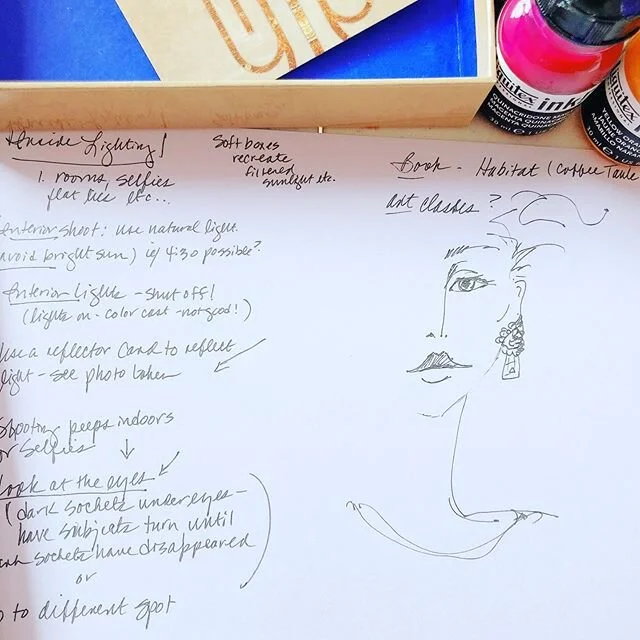 Inside Lighting!
1. rooms, selfies
flat lies etc...
Soft boxes
recreate
filtered
sunlight etc.
Book - Habitat (Coffee Table
art classes?
Interior shoot: use natural light.
(avoid bright sun) ie/ 4:30 possible?
Interior Lights - shut off!
(lights on - color cast - not good!)
Use a reflector card to reflect
light - see photo taken
Shooting peeps indoors
or selfies
Look at the eyes
(dark sockets under eyes -
have subjects turn until
dark sockets have disappeared
or
to different spot
quitex
ink!
QUINACRIDONE MAGENTA
30 ml
quitex
YELLOW ORANGE